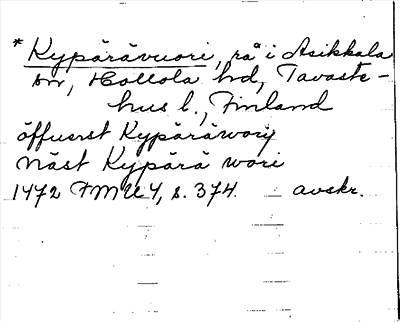 * Kypärävuori, rå i Asikkala
sn, Hollola hd, Tavaste-
hus l., Finland
öffuerst Kypäräwory
näst Kypärä wori
1472 FMU 4, s. 374. avskr.